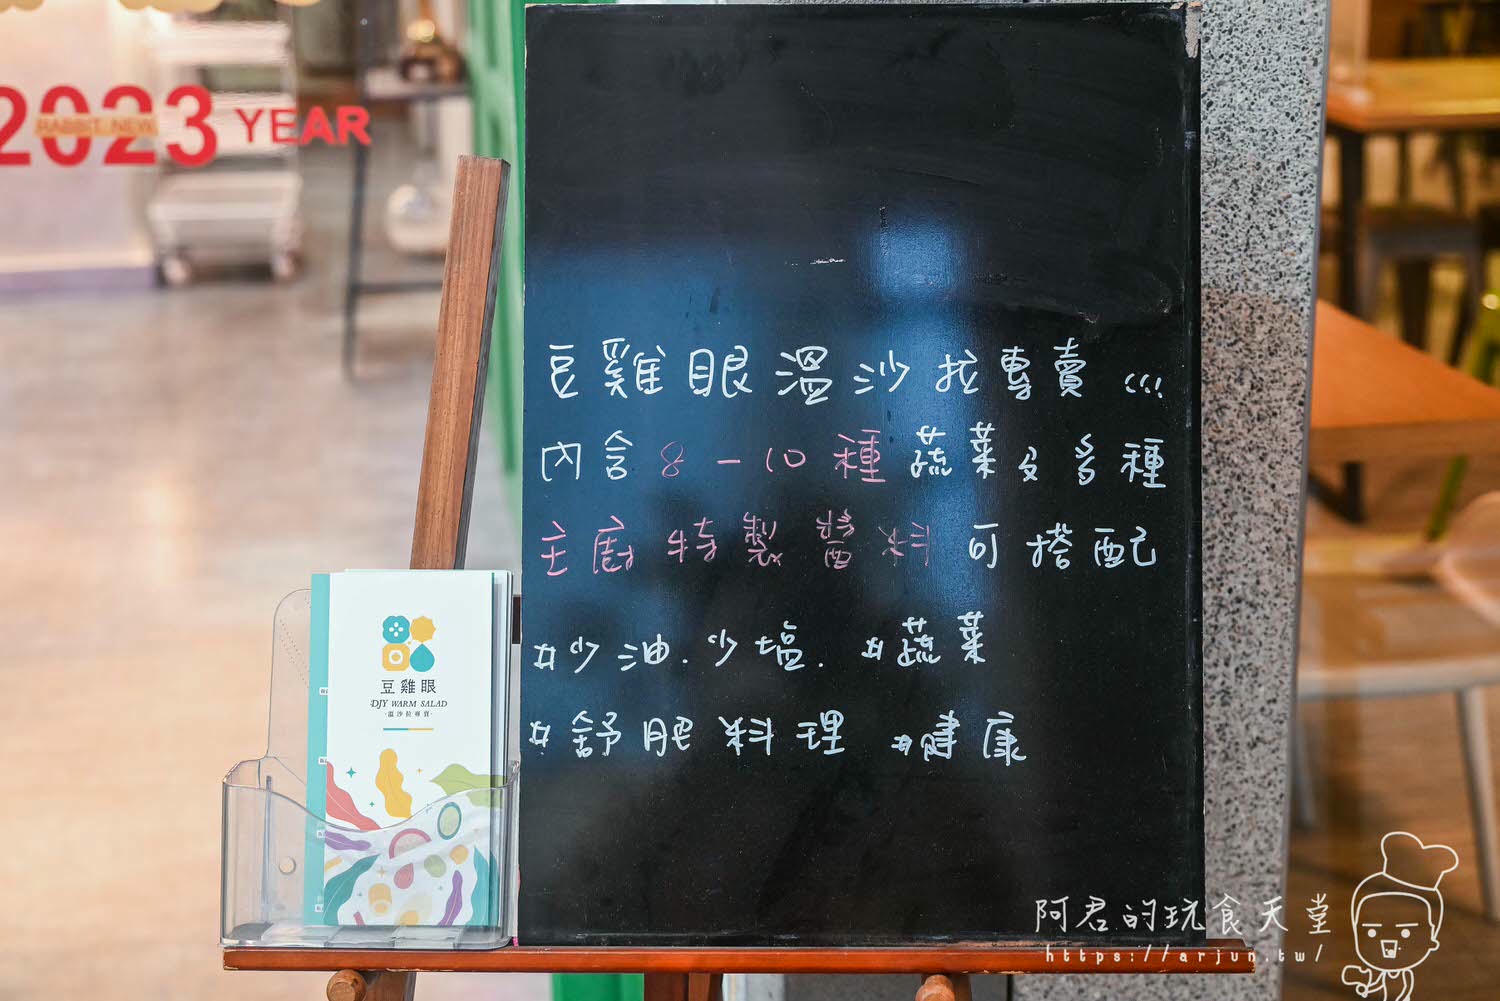 2023 YEAR
RABBIT NEW
豆雞眼溫沙拉專賣
內含8-10種蔬菜及多種
主廚特製醬料可搭配
#少油.少塩. #蔬菜
#舒肥料理 #健康
豆雞眼
DJY WARM SALAD
·溫沙拉專賣·
阿君的玩食天堂
https://arjun.tw/